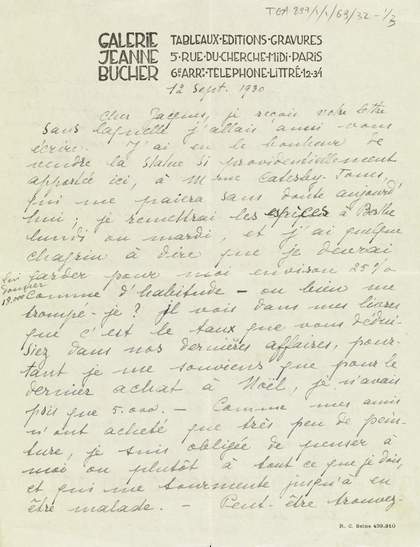 TGA 899/1/1/63/32-1/3
GALERIE JEANNE BUCHER
TABLEAUX·EDITIONS·GRAVURES
5·RUE·DU·CHERCHE·MIDI·PARIS
6e ARRt·TELEPHONE·LITTRÉ·12-34
12 Sept. 1930
Cher Jacques, je reçois votre lettre
sans laquelle j'allais aussi vous
écrire. J'ai eu le bonheur de
vendre la statue si providentiellement
apportée ici, à Mme
qui me paiera sans doute aujourd'
hui; je remettrai les espèces à
lundi ou mardi, et j'ai quelque
chagrin à dire que je devrai
garder pour moi environ 25%
comme d'habitude — ou bien me
trompe-je? Je vois dans mes livres
que c'est le taux que vous dédui-
siez dans nos dernières affaires, pour-
tant je me souviens que pour le
dernier achat à Noël, je n'avais
pris que 5.000. — Comme mes amis
n'ont acheté que très peu de pein-
ture, je suis obligée de penser à
moi ou plutôt à tout ce que je dois,
et qui me tourmente jusqu'à en
être malade. — Peut-être trouvez-
R. C. Seine 499.310